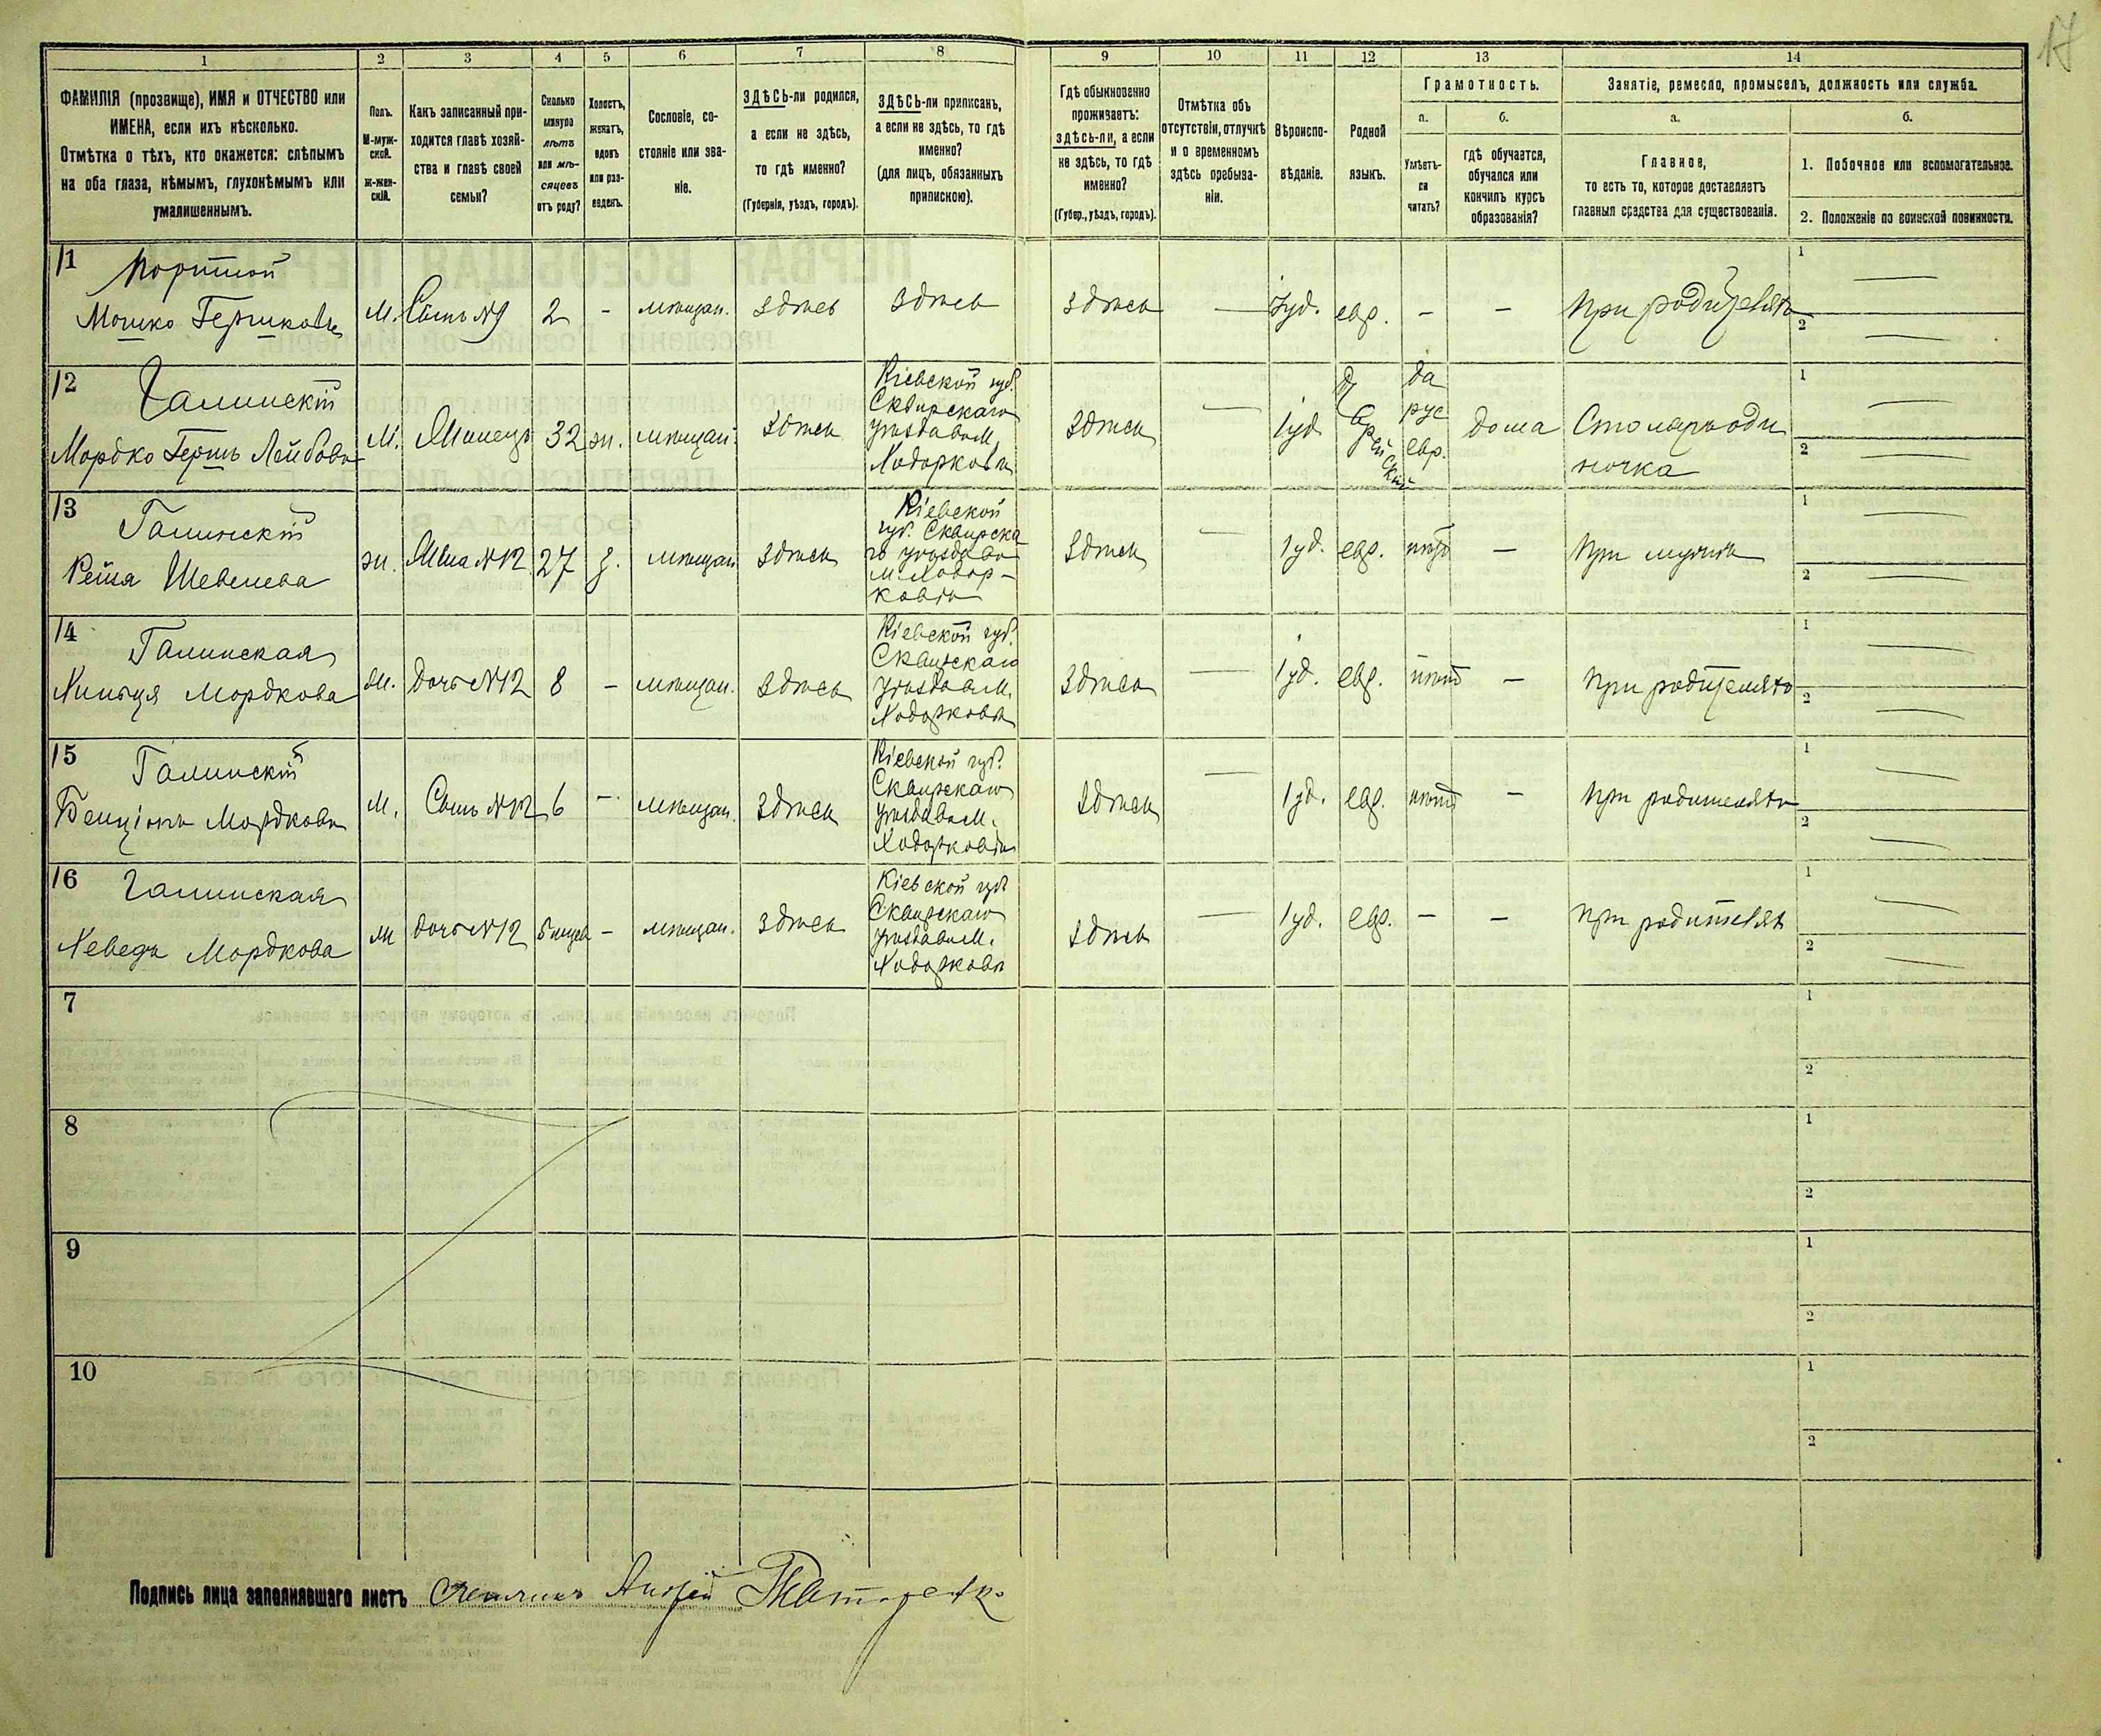 17
1 2 3 4 5 6 7 8 9 10 11 12 13 14
ФАМИЛІЯ (прозвище), ИМЯ и ОТЧЕСТВО или
ИМЕНА, если ихъ нѣсколько.
Отмѣтка о тѣхъ, кто окажется: слѣпымъ
на оба глаза, нѣмымъ, глухонѣмымъ или
умалишеннымъ.
Полъ.
М-муж-
ской.
Ж-жен-
скій.
Какъ записанный при-
ходится главѣ хозяй-
ства и главѣ своей
семьи?
Сколько
минуло
лѣтъ
или мѣ-
сяцевъ
отъ роду?
Холостъ,
женатъ,
вдовъ
или раз-
веденъ.
Сословіе, со-
стояніе или зва-
ніе.
ЗДѢСЬ-ли родился,
а если не здѣсь,
то гдѣ именно?
(Губернія, уѣздъ, городъ).
ЗДѢСЬ-ли приписанъ,
а если не здѣсь, то гдѣ
именно?
(для лицъ, обязанныхъ
припискою).
Гдѣ обыкновенно
проживаетъ:
здѣсь-ли, а если
не здѣсь, то гдѣ
именно?
(Губер., уѣздъ, городъ).
Отмѣтка объ
отсутствіи, отлучкѣ
и о временномъ
здѣсь пребыва-
ніи.
Вѣроиспо-
вѣданіе.
Родной
языкъ.
Грамотность.
а.
Умѣетъ-
ли
читать?
б.
гдѣ обучается,
обучался или
кончилъ курсъ
образованія?
Занятіе, ремесло, промыселъ, должность или служба.
а.
Главное,
то есть то, которое доставляетъ
главныя средства для существованія.
б.
1. Побочное или вспомогательное.
2. Положеніе по воинской повинности.
11 Портной
Мошко Гершковъ
М.
Сынъ №9
2
-
мѣщан.
здѣсь
здѣсь
здѣсь
—
іуд.
евр.
-
-
При родителяхъ
1 —
2 —
12 Галинскій
Мордко Гершъ Лейбовъ
М.
Жилецъ
32
ж.
мѣщан
здѣсь
Кіевской губ.
Сквирскаго
уѣзда въ М.
Ходорковѣ
здѣсь
—
іуд
Еврейскій
да
рус
евр.
дома
Столяръ оди
ночка
1 —
2 —
13 Галинскій
Рейзя Шевелева
ж.
Жена №12
27
з.
мѣщан
здѣсь
Кіевской
губ. Сквирска
го уѣзда въ
м. Ходор-
ковѣ
здѣсь
—
іуд.
евр.
нѣтъ
—
при мужѣ
1 —
2 —
14 Галинская
Мордкова
ж.
Дочь №12
8
-
мѣщан.
здѣсь
Кіевской губ.
Сквирскаго
уѣзда въ М.
Ходорковѣ
здѣсь
—
іуд.
евр.
нѣтъ
—
при родителяхъ
1 —
2 —
15 Галинскій
Бенціонъ Мордковъ
М.
Сынъ №12
6
-
мѣщан.
здѣсь
Кіевской губ.
Сквирскаго
уѣзда въ М.
Ходорковѣ
здѣсь
—
іуд.
евр.
нѣтъ
-
при родителяхъ
1 —
2 —
16 Галинская
Мордкова
дочь №12
-
мѣщан.
здѣсь
Кіевской губ
Сквирскаго
уѣзда въ М.
Ходорковѣ
здѣсь
—
іуд.
евр.
-
-
при родителяхъ
1 —
2 —
7
1
2
8
1
2
9
1
2
10
1
2
Подпись лица заполнявшаго листъ Андрей